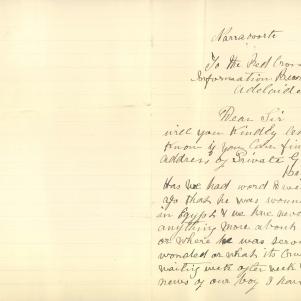 Narracoorte
To the Red Cross
Information Bureau
Adelaide
Dear Sir
will you Kindly let
Know if you Can fin
address of Private G
Has we had word
ago that he was woun
in Egypt & we have neve
anything more about
or where he was
wonded or what its
waiting week after week
news of our boy I have